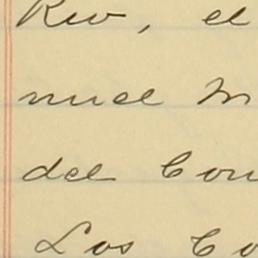 Rev, el
nuel M
del Con
Los Co